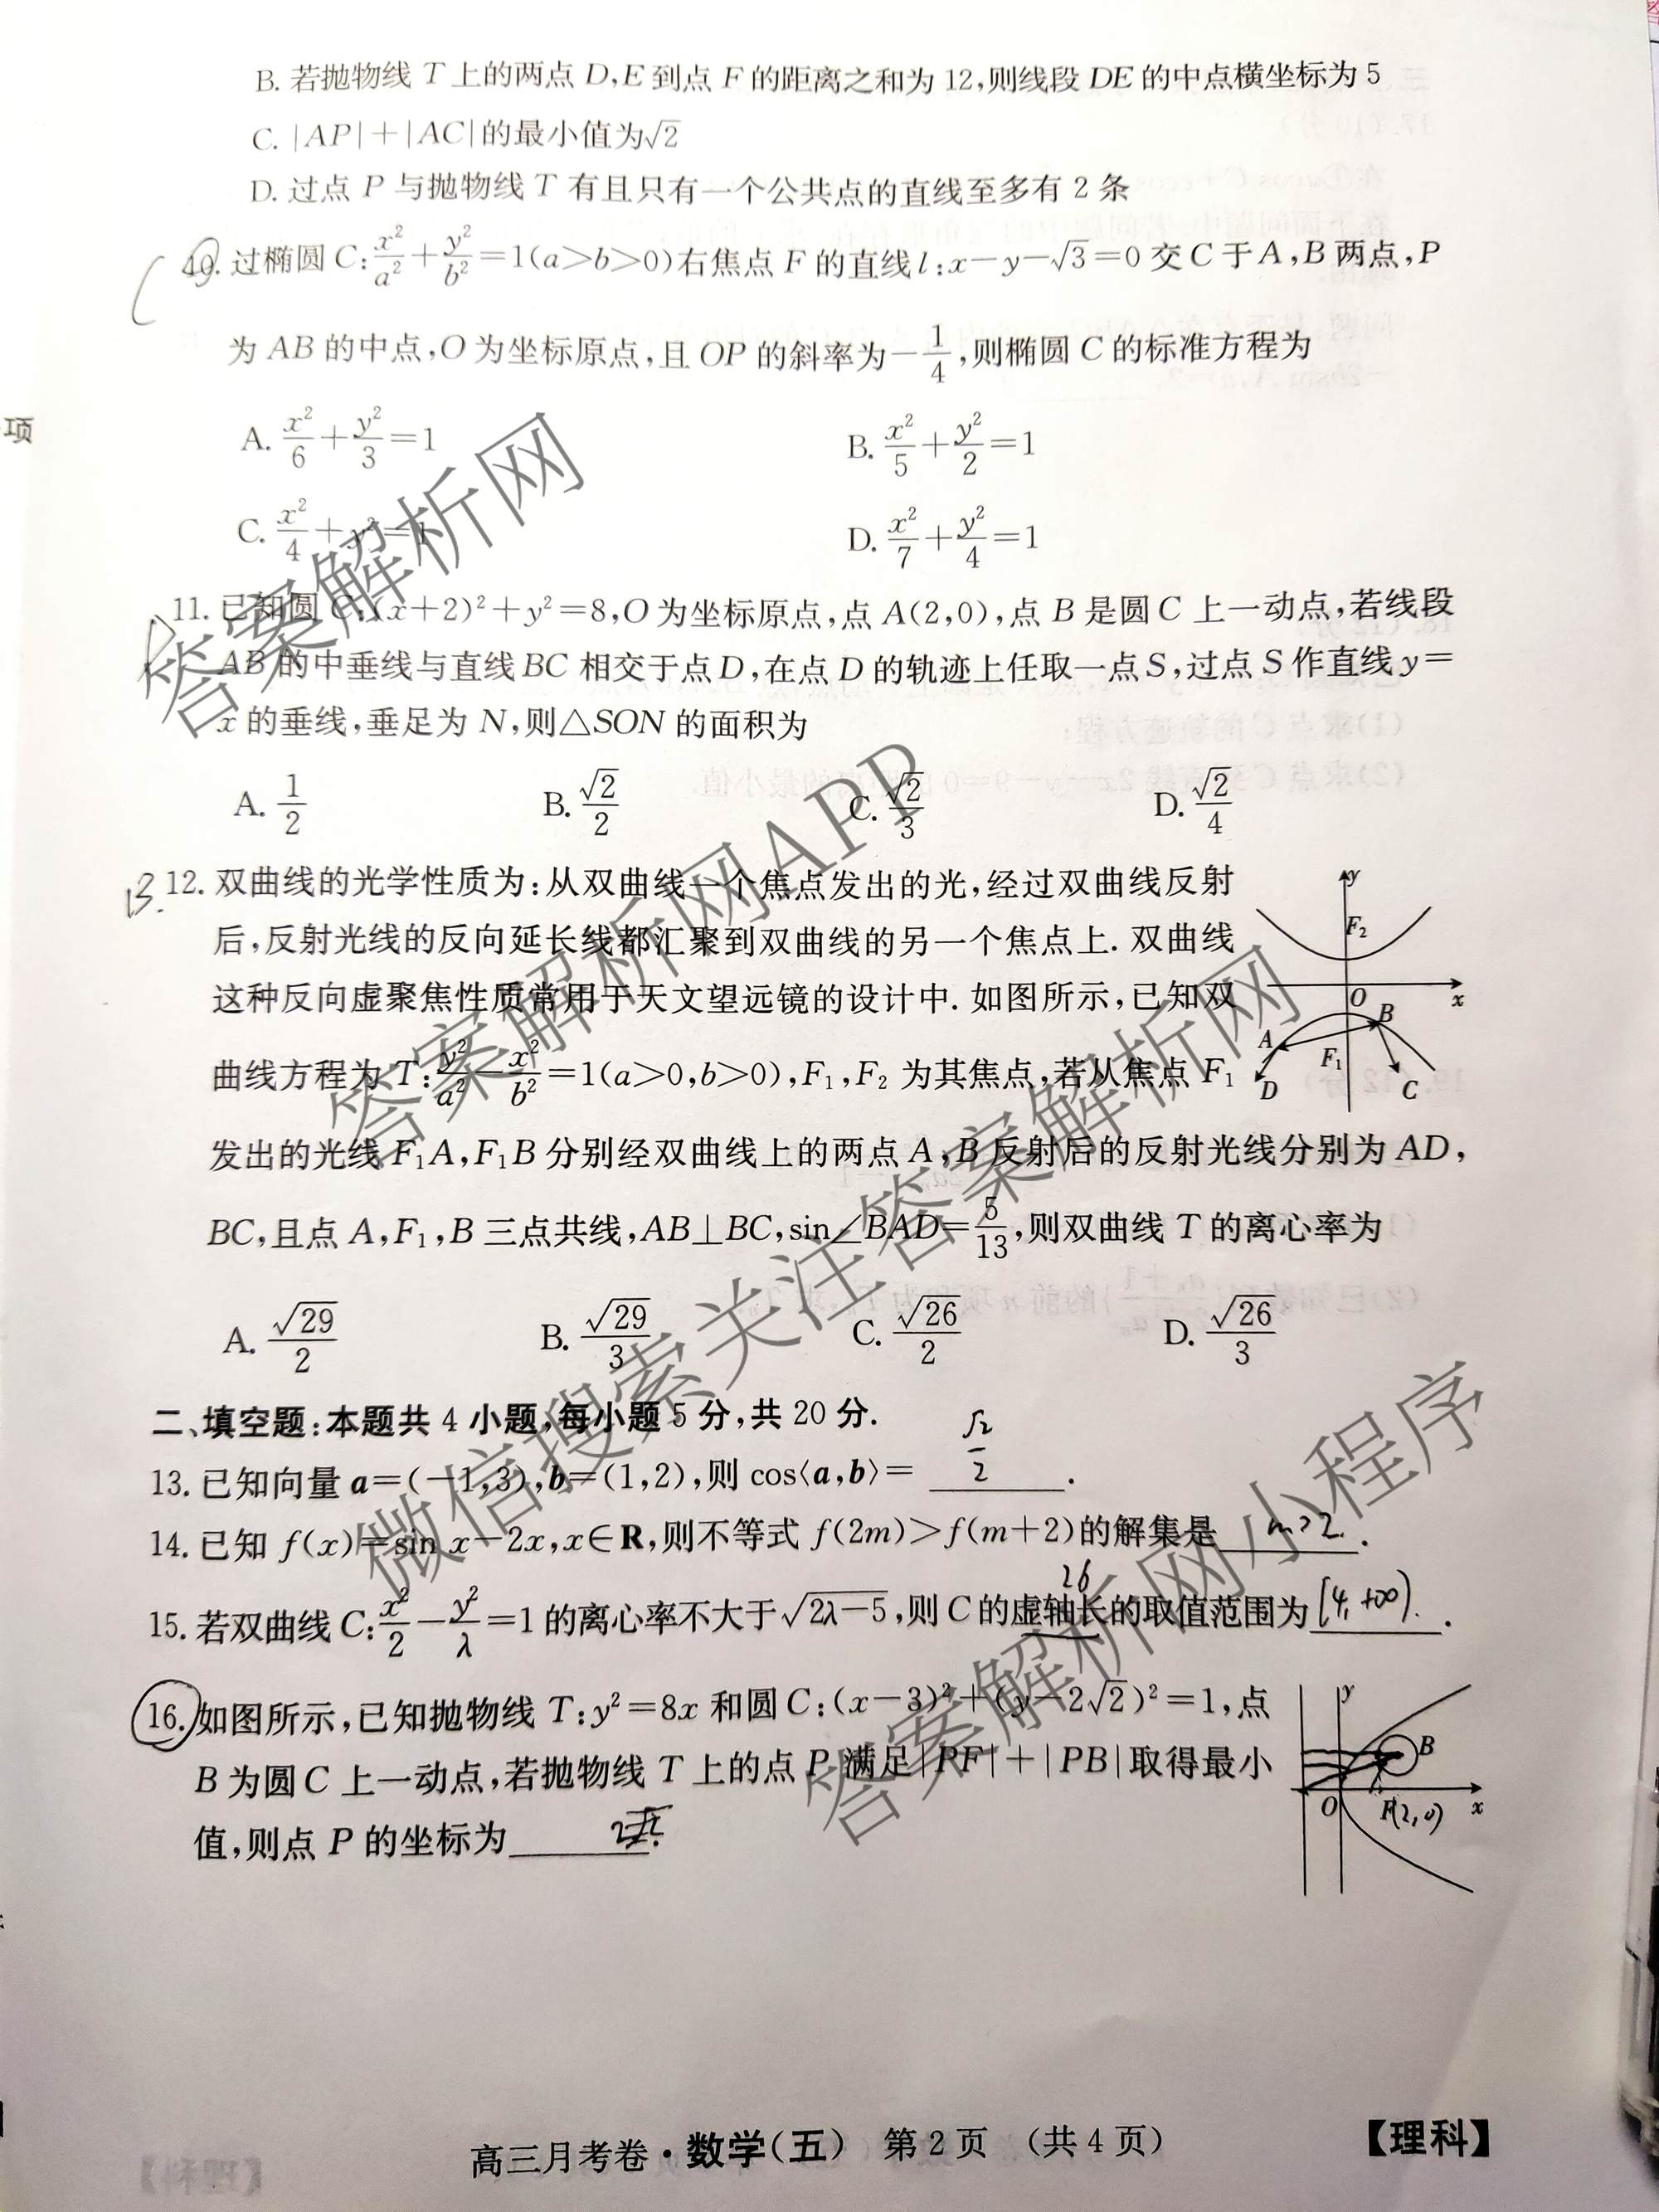 B. 若抛物线 T 上的两点 D,E 到点 F 的距离之和为 12,则线段 DE 的中点横坐标为 5
C. |AP|+|AC|的最小值为√2
D. 过点 P 与抛物线 T 有且只有一个公共点的直线至多有 2 条
10. 过椭圆 C:x²/a²+y²/b²=1(a>b>0)右焦点 F 的直线 l:x-y-√3=0 交 C 于 A,B 两点,P
为 AB 的中点,O 为坐标原点,且 OP 的斜率为-1/4,则椭圆 C 的标准方程为
项
A. x²/6+y²/3=1 B. x²/5+y²/2=1
C. x²/4+y²=1 D. x²/7+y²/4=1
11. 已知圆 C:(x+2)²+y²=8,O 为坐标原点,点 A(2,0),点 B 是圆 C 上一动点,若线段
AB 的中垂线与直线 BC 相交于点 D,在点 D 的轨迹上任取一点 S,过点 S 作直线 y=
x 的垂线,垂足为 N,则△SON 的面积为
A. 1/2 B. √2/2 C. √2/3 D. √2/4
12. 双曲线的光学性质为:从双曲线一个焦点发出的光,经过双曲线反射
后,反射光线的反向延长线都汇聚到双曲线的另一个焦点上. 双曲线
这种反向虚聚焦性质常用于天文望远镜的设计中. 如图所示,已知双
曲线方程为 T:y²/a²-x²/b²=1(a>0,b>0),F₁,F₂ 为其焦点,若从焦点 F₁
发出的光线 F₁A,F₁B 分别经双曲线上的两点 A,B 反射后的反射光线分别为 AD,
BC,且点 A,F₁,B 三点共线,AB⊥BC,sin∠BAD=5/13,则双曲线 T 的离心率为
y
F₂
O
x
B
A
F₁
D
C
A. √29/2 B. √29/3 C. √26/2 D. √26/3
二、填空题:本题共 4 小题,每小题 5 分,共 20 分.
13. 已知向量 a=(-1,3),b=(1,2),则 cos⟨a,b⟩= √2/2 .
14. 已知 f(x)=sin x-2x,x∈R,则不等式 f(2m)>f(m+2)的解集是 m>2. .
2b
15. 若双曲线 C:x²/2-y²/λ=1 的离心率不大于√(2λ-5),则 C 的虚轴长的取值范围为 [4,+∞). .
16. 如图所示,已知抛物线 T:y²=8x 和圆 C:(x-3)²+(y-2√2)²=1,点
B 为圆 C 上一动点,若抛物线 T 上的点 P 满足|PF|+|PB|取得最小
值,则点 P 的坐标为 .
y
B
O
F(2,0)
x
高三月考卷·数学(五) 第 2 页 (共 4 页)
【理科】
答案解析网
答案解析网APP
微信搜索关注答案解析网
答案解析网小程序